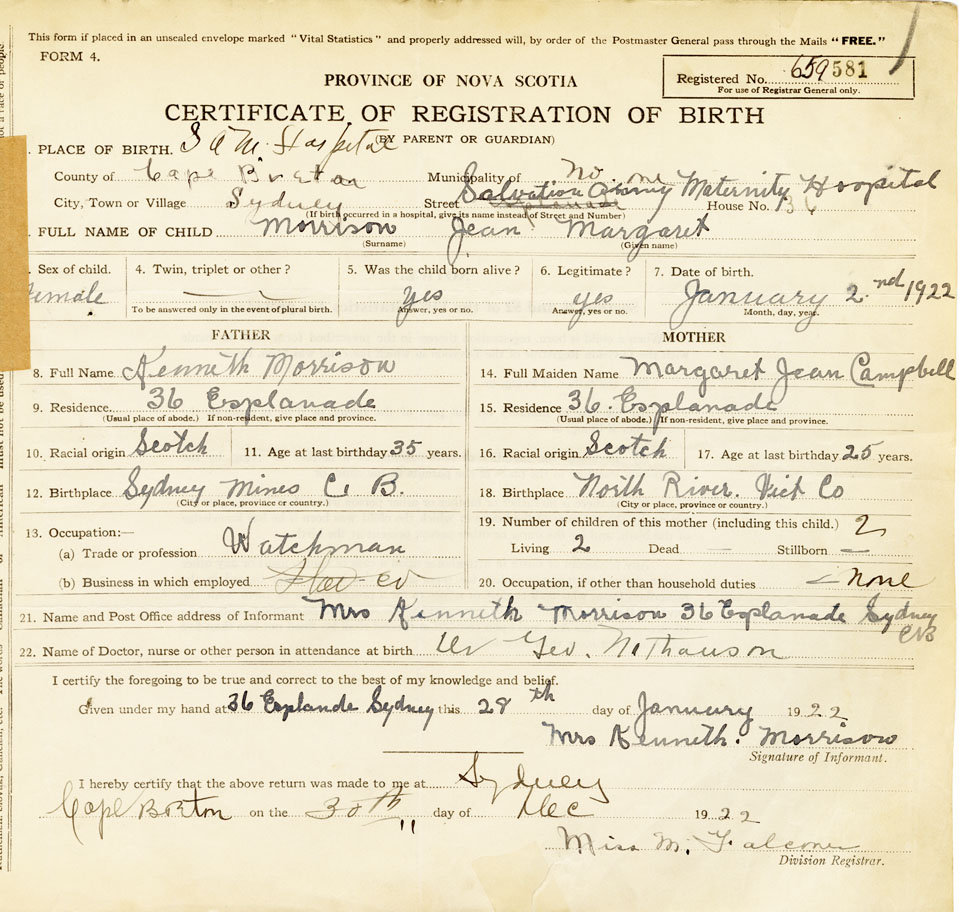 This form if placed in an unsealed envelope marked "Vital Statistics" and properly addressed will, by order of the Postmaster General pass through the Mails "FREE."
FORM 4.
Registered No. 659581
For use of Registrar General only.
PROVINCE OF NOVA SCOTIA
CERTIFICATE OF REGISTRATION OF BIRTH
(BY PARENT OR GUARDIAN)
. PLACE OF BIRTH. S A M. Hospital
County of Cape Breton Municipality of No. one
City, Town or Village Sydney Street Salvation Army Maternity Hospital House No. 36
(If birth occurred in a hospital, give its name instead of Street and Number)
. FULL NAME OF CHILD Morrison Jean Margaret
(Surname) (Given name)
. Sex of child. 4. Twin, triplet or other? 5. Was the child born alive? 6. Legitimate? 7. Date of birth.
emale yes yes January 2nd 1922
To be answered only in the event of plural birth. Answer, yes or no. Answer, yes or no. Month, day, year.
FATHER MOTHER
8. Full Name Kenneth Morrison 14. Full Maiden Name Margaret Jean Campbell
9. Residence 36 Esplanade 15. Residence 36. Esplanade
(Usual place of abode.) If non-resident, give place and province. (Usual place of abode.) If non-resident, give place and province.
10. Racial origin Scotch 11. Age at last birthday 35 years. 16. Racial origin Scotch 17. Age at last birthday 25 years.
12. Birthplace Sydney Mines C. B. 18. Birthplace North River. Vict Co
(City or place, province or country.) (City or place, province or country.)
13. Occupation:— 19. Number of children of this mother (including this child.) 2
(a) Trade or profession Watchman Living 2 Dead — Stillborn —
(b) Business in which employed 20. Occupation, if other than household duties None
21. Name and Post Office address of Informant Mrs Kenneth Morrison 36 Esplanade Sydney
CB
22. Name of Doctor, nurse or other person in attendance at birth Dr Geo. Nathanson
I certify the foregoing to be true and correct to the best of my knowledge and belief.
Given under my hand at 36 Esplande Sydney this 28th day of January 1922
Mrs Kenneth. Morrison
Signature of Informant.
I hereby certify that the above return was made to me at Sydney
Cape Breton on the 30th day of Dec 1922
Miss M. Falconer
Division Registrar.